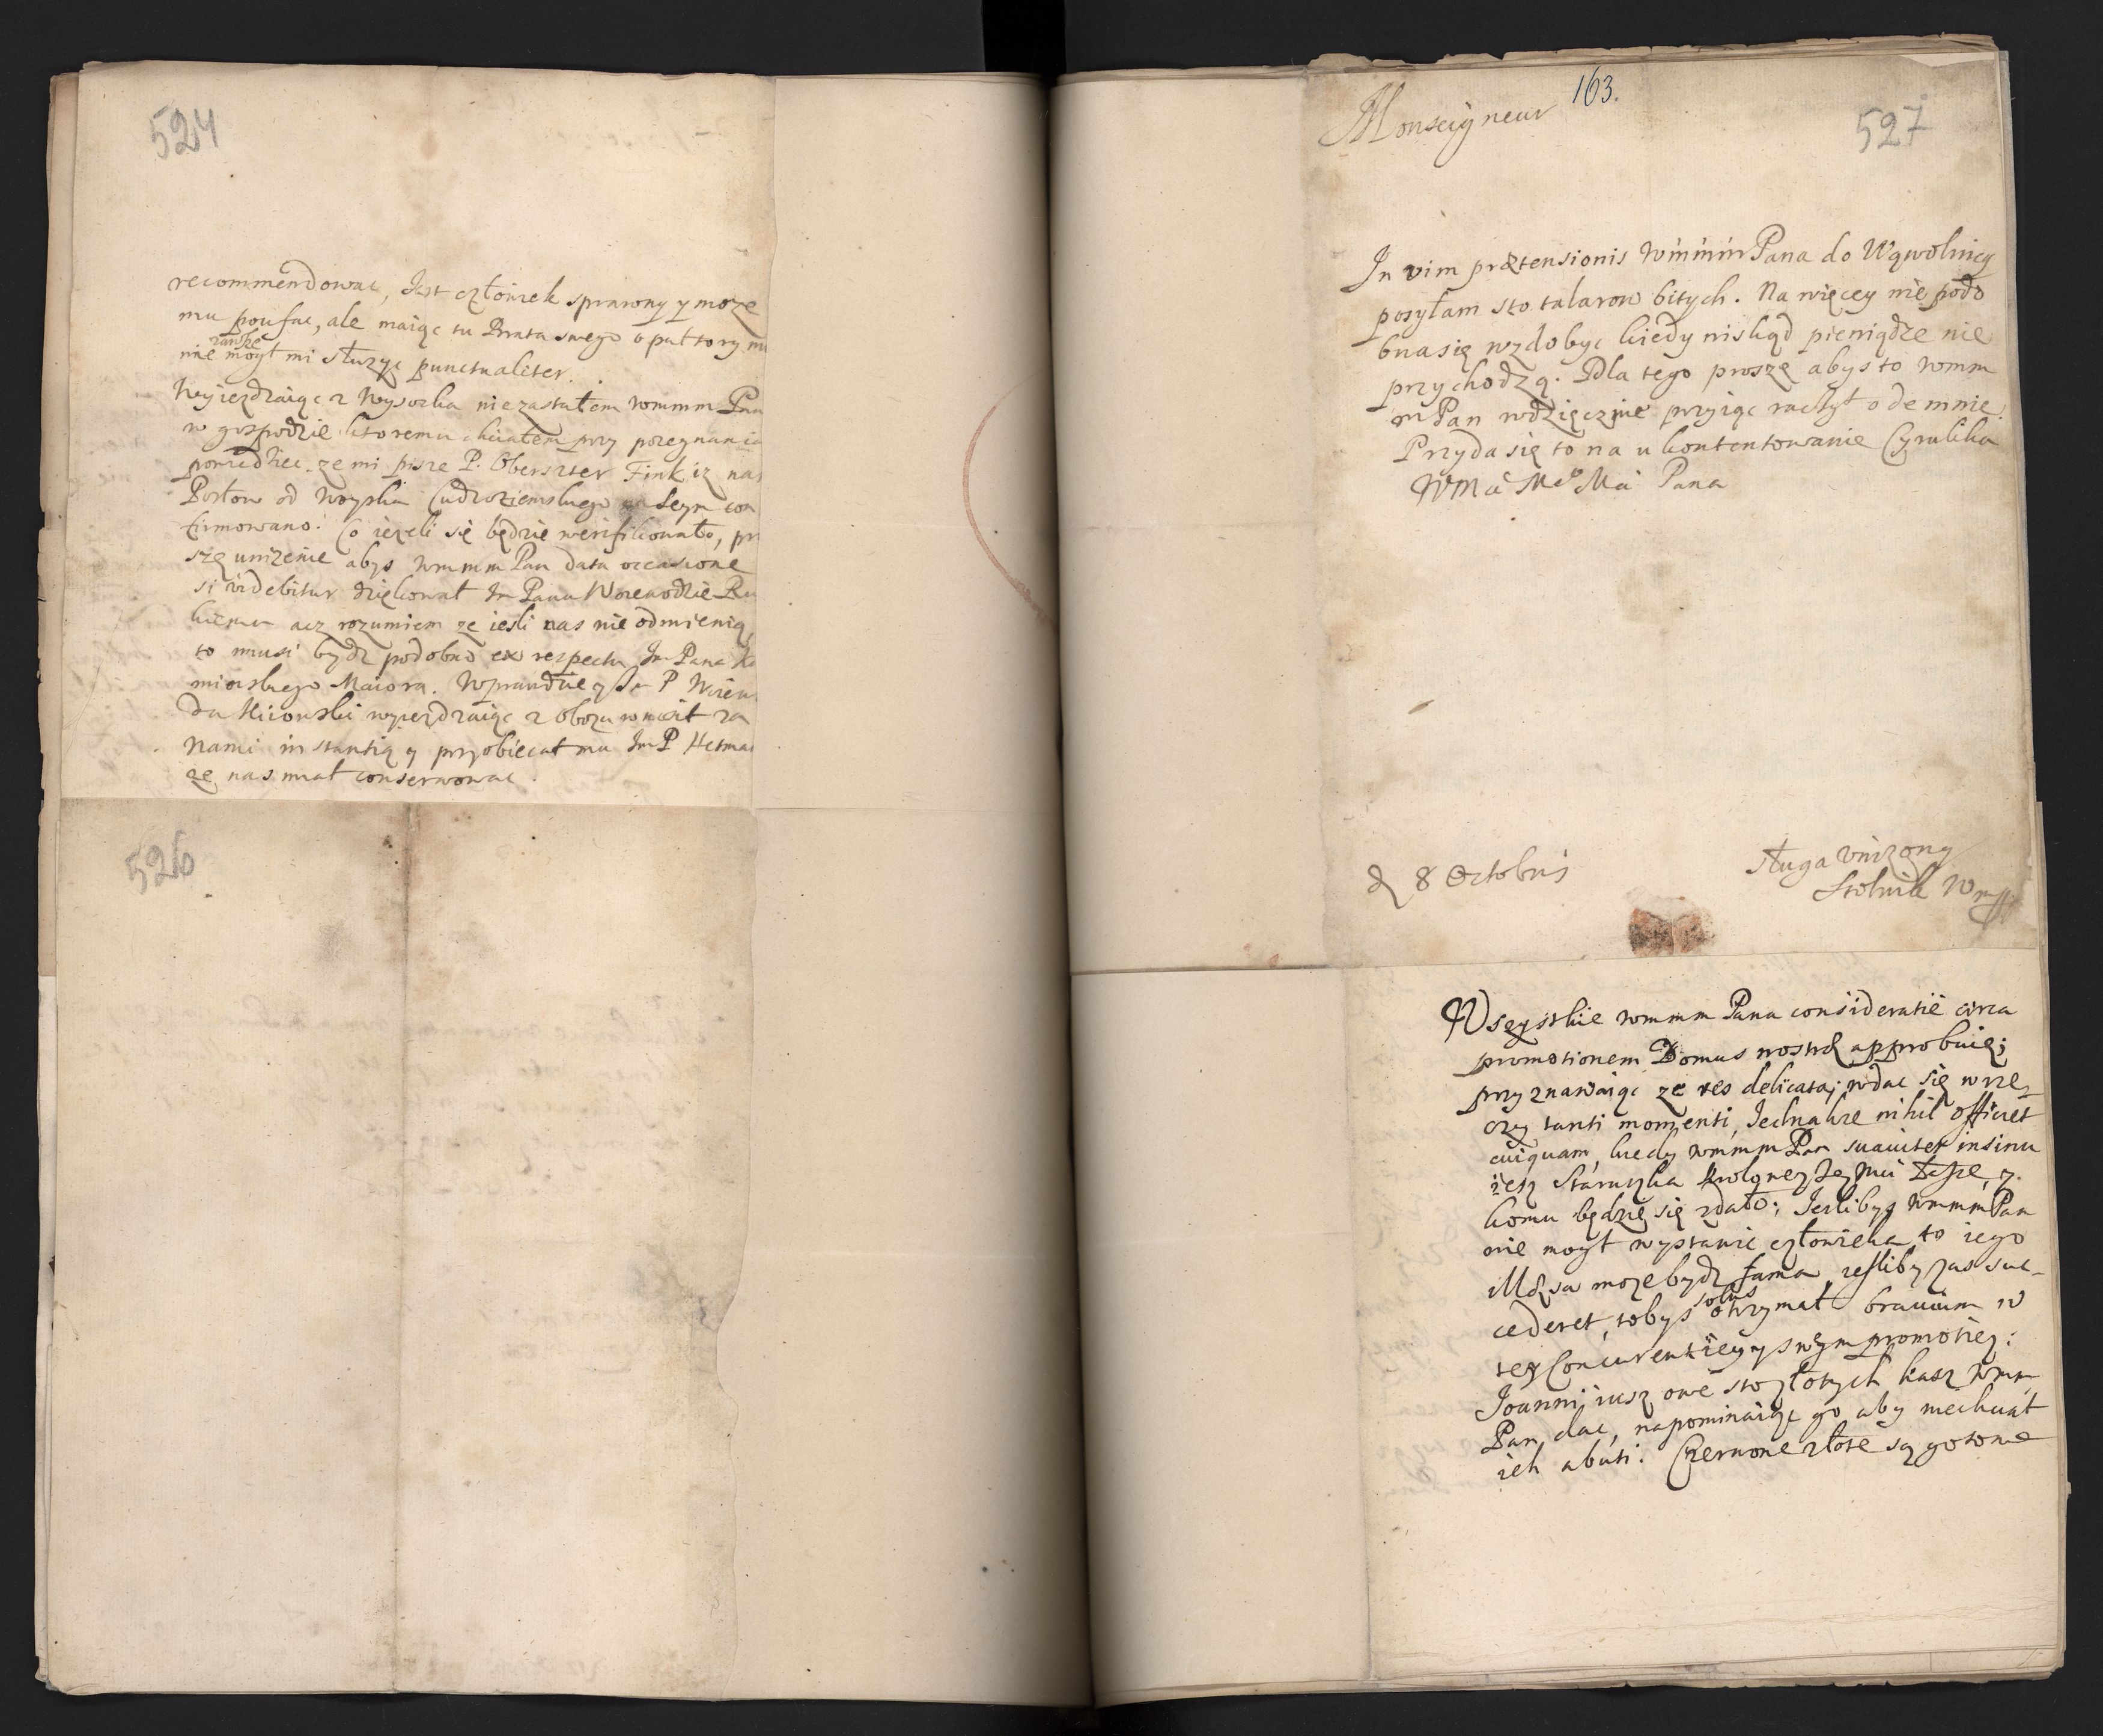 524
recommendowac, Jest człowiek sprawny y moze
mu poufac, ale maiąc tu Brata swego opultory
zawsze
nie mogł mi słuzyc punctualiter.
Wyiezdzaiąc z Wysocka nie zastałem wmmm Pana
w gospodzie ktoremu chciałem przy pozegnaniu
powiedziec ze mi pisze P. Oberszter Fink iz nas
Posłow od Woyska Cudzoziemskiego na Seym con
firmowano. Co iezeli się będzie werifikowało, pro
szę unizenie abys wmmm Pan data occasione
si videbitur dziękował Im Panu Woiewodzie Ru
kiemu acz rozumiem ze iesli nas nie odmienią,
to musi bydz podobno ex respectu Im Pana Ka
minskiego Maiora. Wprawdzie y Im P Woiew
da Kiiowski wyiezdzaiąc z obozu wnosił za
nami instantią y przyobiecał mu Im P Hetman
ze nas miał conserwowac.
526
163.
527
Monseigneur
In vim prætensionis Wmmm Pana do Wąwolnicy
posyłam sto talarow bitych. Na więcey nie podo
bna się wzdobyc kiedy niskąd pieniądze nie
przychodzą. Dla tego proszę abys to wmm
m Pan wdzięcznie przyiąc raczył odemnie.
Przyda się to na ukontentowanie Cyrulika
WMci Mego Mci Pana
d 8 Octobris
sługa vnizony
Stolnik
Wszystkie wmmm Pana consideratie circa
promotionem Domus nostræ approbuię;
przyznawaiąc ze res delicata; wdac się w rze
czy tanti momenti, Jednakze nihil officiet
cuiquam, kiedy wmmm Pan suauiter insinu
iesz Staruszka Krolowey Jey Mci tesze, y
komu będzie się zdało; Jeslibys wmmm Pan
nie mogł wystawic człowieka to iego
Msa moze bydz fama, iesliby zas suc
solus
cederet, tobys otrzymał brauium w
tey Concurentiey y swym promotiey:
Joanni iusz owe sto złotych kasz wmm
Pan dac, napominaiąc go aby niechciał
ich abuti. Czerwone złote są gotowe